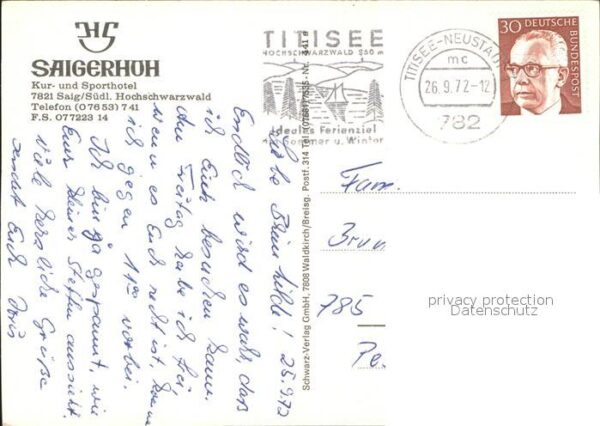 HS
SAIGERHOH
Kur- und Sporthotel
7821 Saig/Südl. Hochschwarzwald
Telefon (07653) 741
F.S. 077223 14
TITISEE
HOCHSCHWARZWALD 850 m
Ideales Ferienziel
Sommer u. Winter
TITISEE-NEUSTADT
mc
26.9.72-12
782
30 DEUTSCHE BUNDESPOST
Schwarz-Verlag GmbH, 7808 Waldkirch/Breisg. Postf. 314 Tel.
25.9.72
Liebe Brunhilde!
Endlich wird es wahr, daß
ich Euch besuchen kann.
Am Freitag habe ich frei,
wenn es Euch recht ist, komme
ich gegen 11°° vorbei.
Ich bin ja gespannt, wie
Euer kleiner Steffen aussieht.
Viele herzliche Grüße
sendet Euch Iris
Fam.
Brun
785
privacy protection
Datenschutz